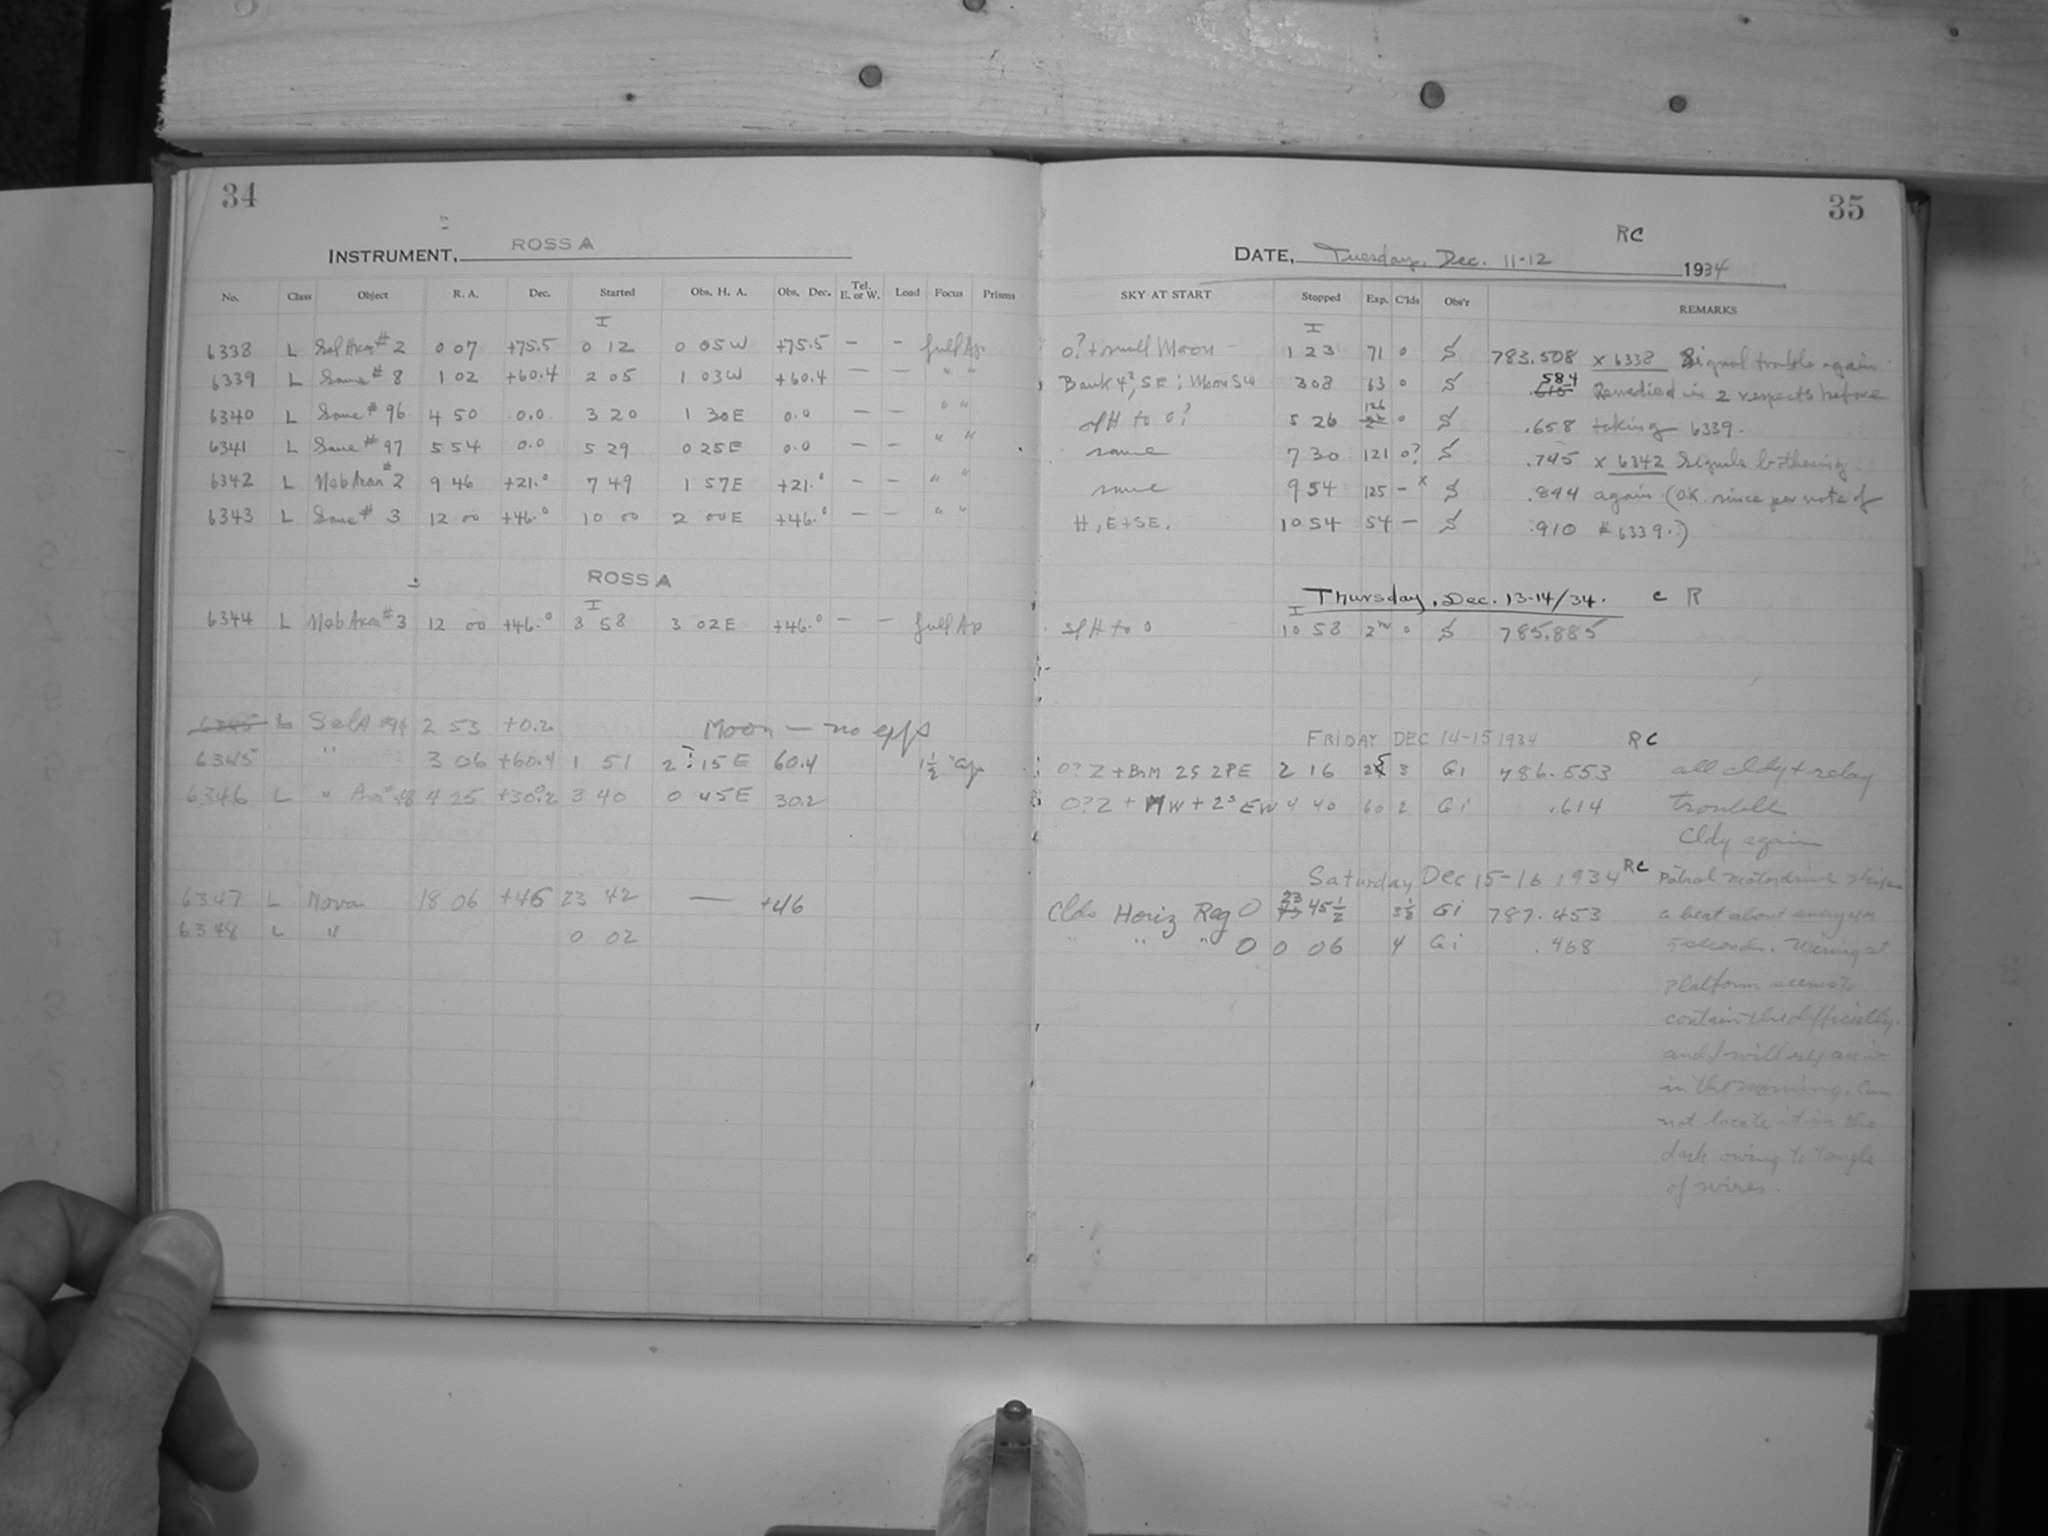 34
INSTRUMENT, ROSS A
No. Class Object R. A. Dec. Started Obs. H. A. Obs. Dec. Tel. E. or W. Load Focus Prisms
I
6338 L Sel Area #2 0 07 +75.5 0 12 0 05W +75.5 — — full Ap
6339 L Same #8 1 02 +60.4 2 05 1 03W +60.4 — — " "
6340 L Same #96 4 50 0.0 3 20 1 30E 0.0 — — " "
6341 L Same #97 5 54 0.0 5 29 0 25E 0.0 — — " "
6342 L Neb Area #2 9 46 +21.0 7 49 1 57E +21.0 — — "
6343 L Same #3 12 00 +46.0 10 00 2 00E +46.0 — — " "
ROSS A
I
6344 L Neb Area #3 12 00 +46.0 8 58 3 02E +46.0 — — full Ap
6345 L Sel A #94 2 53 +0.2 Moon — no exps
6345 " 3 06 +60.4 1 51 2 15E 60.4 1½" ap
6346 L " Area #48 4 25 +30.2 3 40 0 45E 30.2
6347 L Nova 18 06 +46 23 42 — +46
6348 L " 0 02
35
RC
DATE, Tuesday, Dec. 11-12 1934
SKY AT START Stopped Exp. C'lds Obs'r REMARKS
I
0? + small Moon 1 23 71 0 S 783.508 x 6338 Signal trouble again
Bank 4², SE; Moon SW 3 08 63 0 S .584 Remedied in 2 respects before
sl H to 0? 5 26 126 0 S .658 taking 6339.
same 7 30 121 0? S .745 x 6342 Signals bothering
same 9 54 125 — x S .844 again (OK since per note of
H, E+SE. 10 54 54 — S .910 #6339.)
Thursday, Dec. 13-14/34. C R
I
sl H to 0 10 58 2 0 S 785.885
FRIDAY DEC 14-15 1934 RC
0? Z + BrM 2S 2PE 2 16 25 3 Gi 786.553 all cldy + relay
0? Z + MW + 2S EW 4 40 60 2 Gi .614 trouble
Cldy again
Saturday Dec 15-16 1934 RC Patrol motor drive skips
Clds Horiz Rag 0 23 45½ 3½ Gi 787.453 a beat about every
" " " 0 0 06 4 Gi .468 seconds. Wiring at
platform seems to
contain the difficulty.
and I will repair it
in the morning. Can
not locate it in the
dark owing to tangle
of wires.